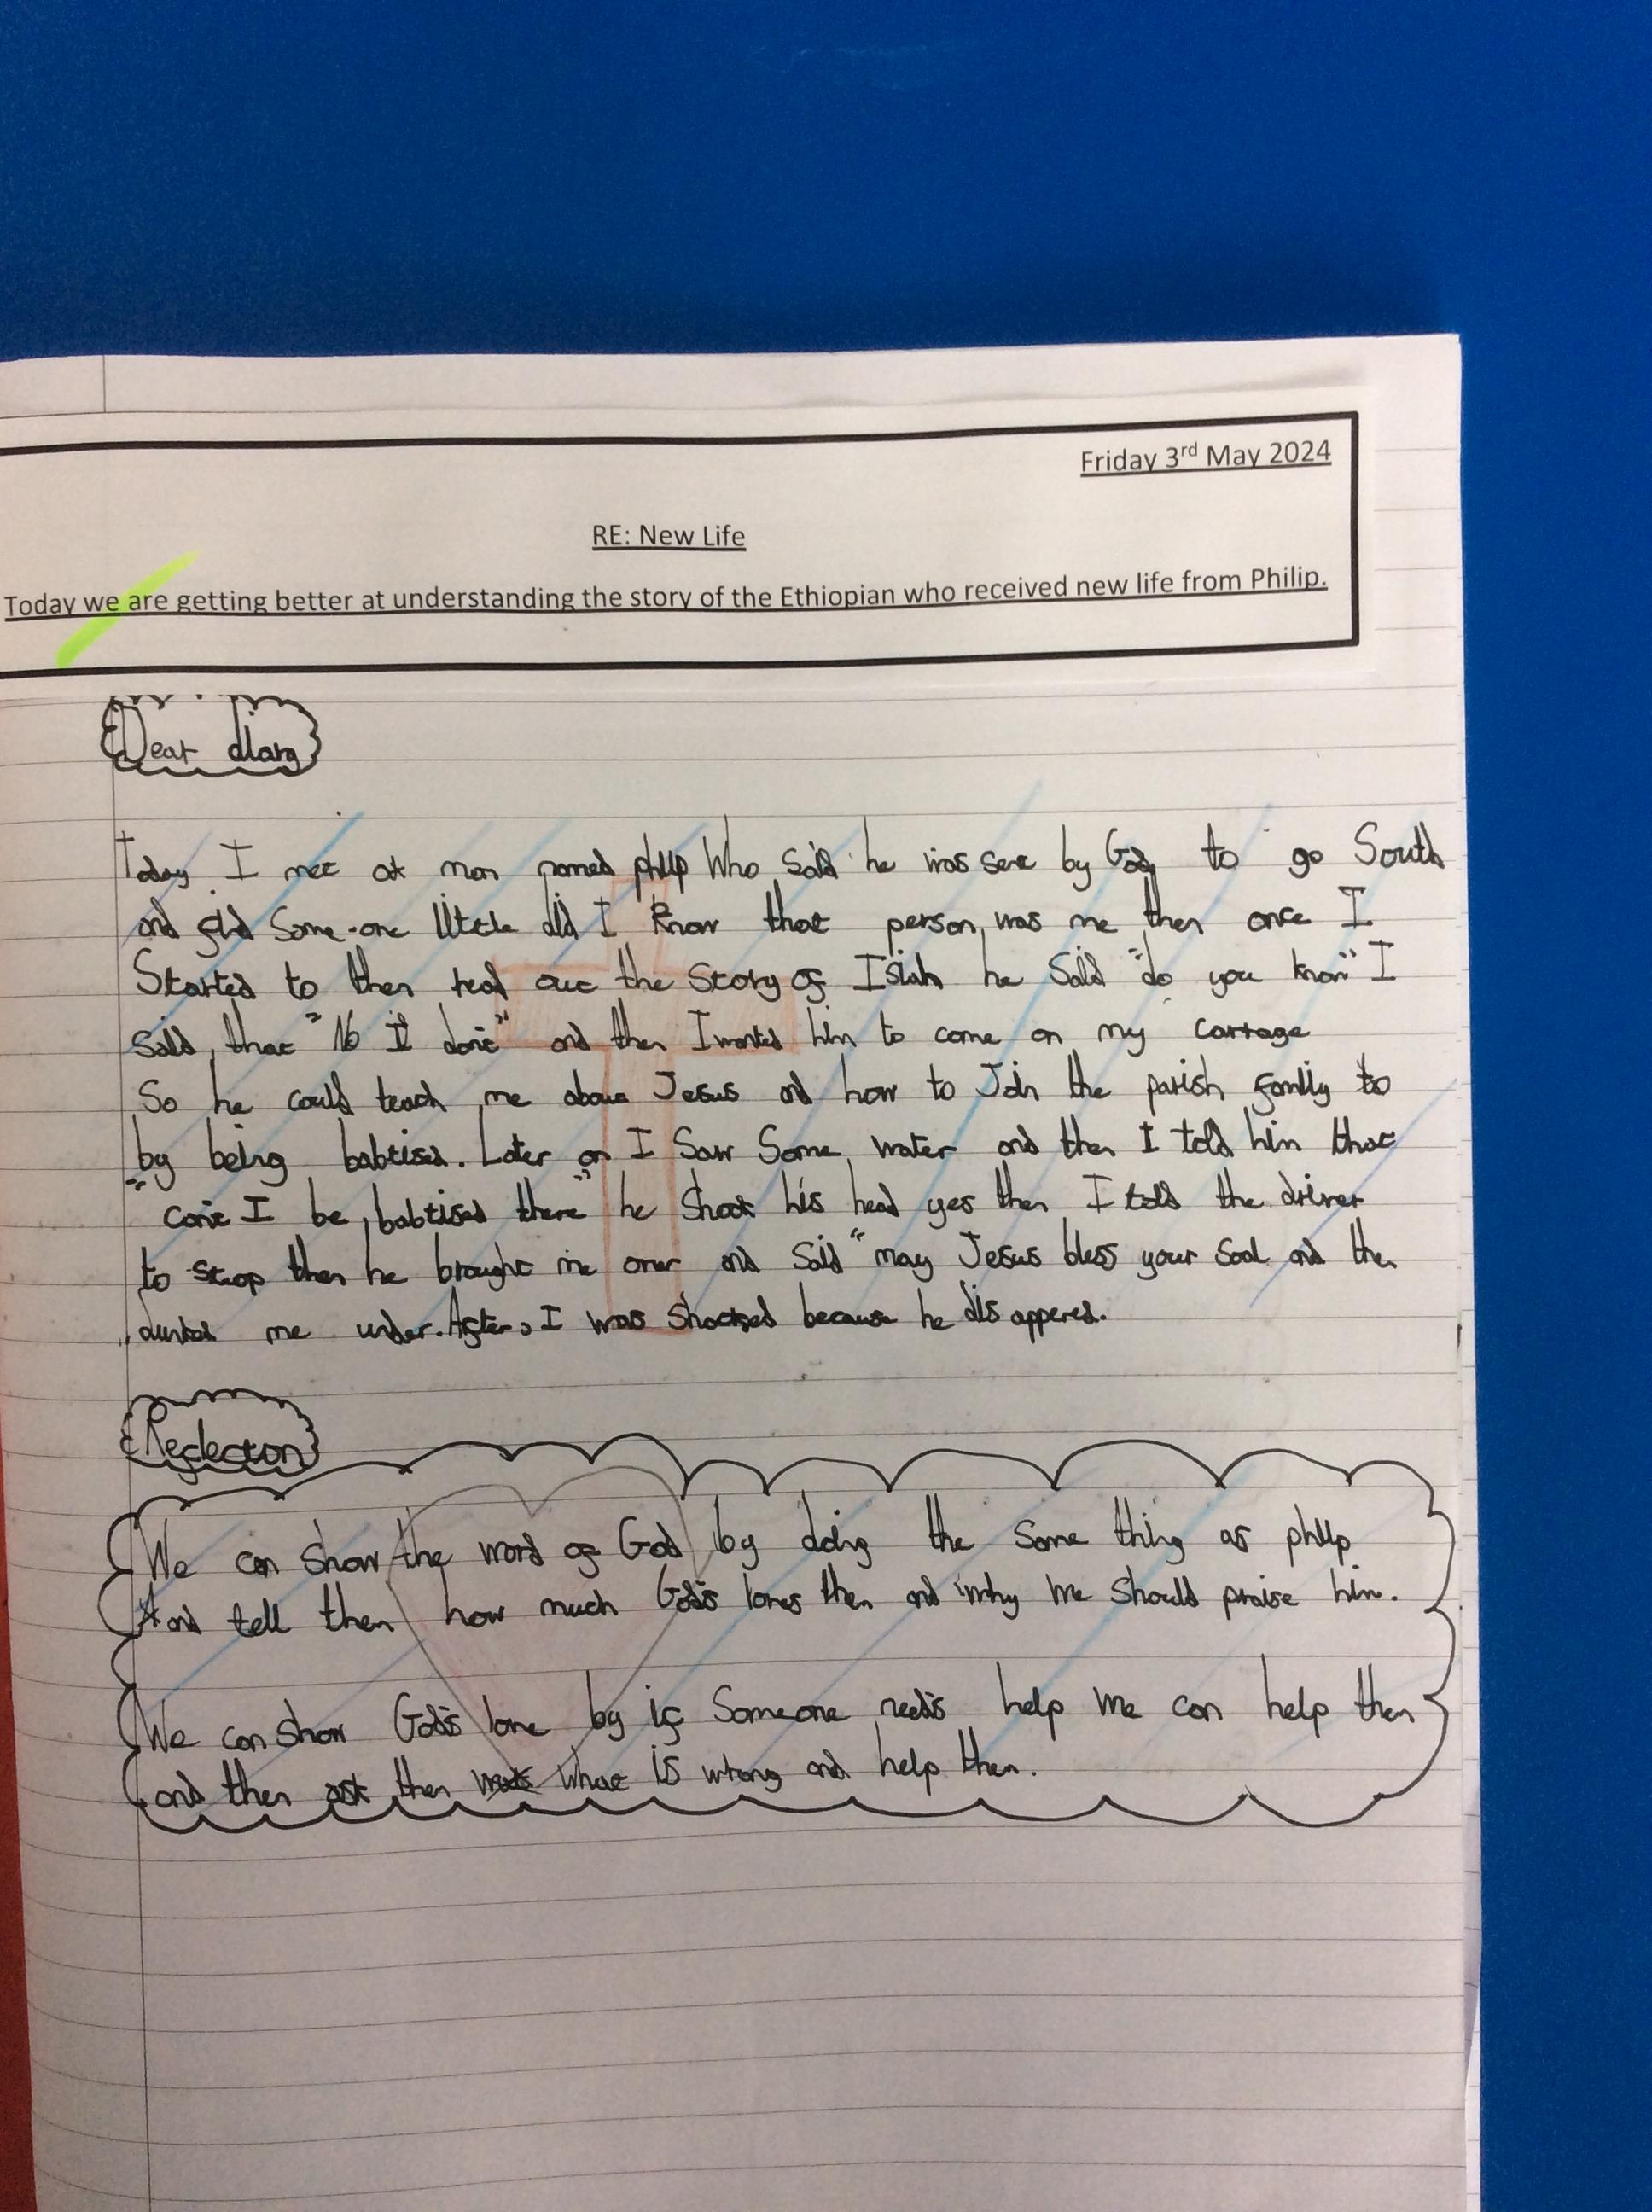 Friday 3rd May 2024
RE: New Life
Today we are getting better at understanding the story of the Ethiopian who received new life from Philip.
Dear diary
Today I met a man named philip Who said he was sent by God to go South
and find Some-one little did I know that person, was me then once I
Started to then read out the Story of Isiah he Said "do you know" I
said, that "No I don't" and then I wanted him to come on my carrage
So he could teach me about Jesus and how to Join the parish family to
by being babtised. Later on I Saw Some water and then I told him that
"can't I be babtised there" he Shook his head yes then I told the driver
to stop then he brought me over and Said "may Jesus bless your Soal and the
dunked me under. After, I was Shocked because he dis appered.
Reflecton
We can Show the word of God by doing the Same thing as philip
And tell them how much God's loves them and why We Should praise him.
We can Show God's love by if Someone needs help We can help them
and then ask them What is wrong and help them.